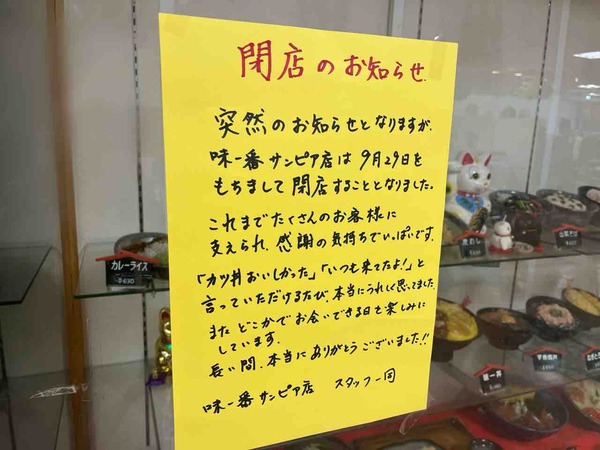 閉店のお知らせ.
突然のお知らせとなりますが、
味一番サンピア店は 9月29日を
もちまして閉店することとなりました。
これまでたくさんのお客様に
支えられ、感謝の気持ちでいっぱいです。
「カツ丼おいしかった」「いつも来てたよ!」と
言っていただけるたび、本当にうれしく思ってました
また どこかで お会いできる日を楽しみに
しています。
長い間、本当に ありがとう ございました!!
味一番サンピア店 スタッフ一同
カレーライス
¥630